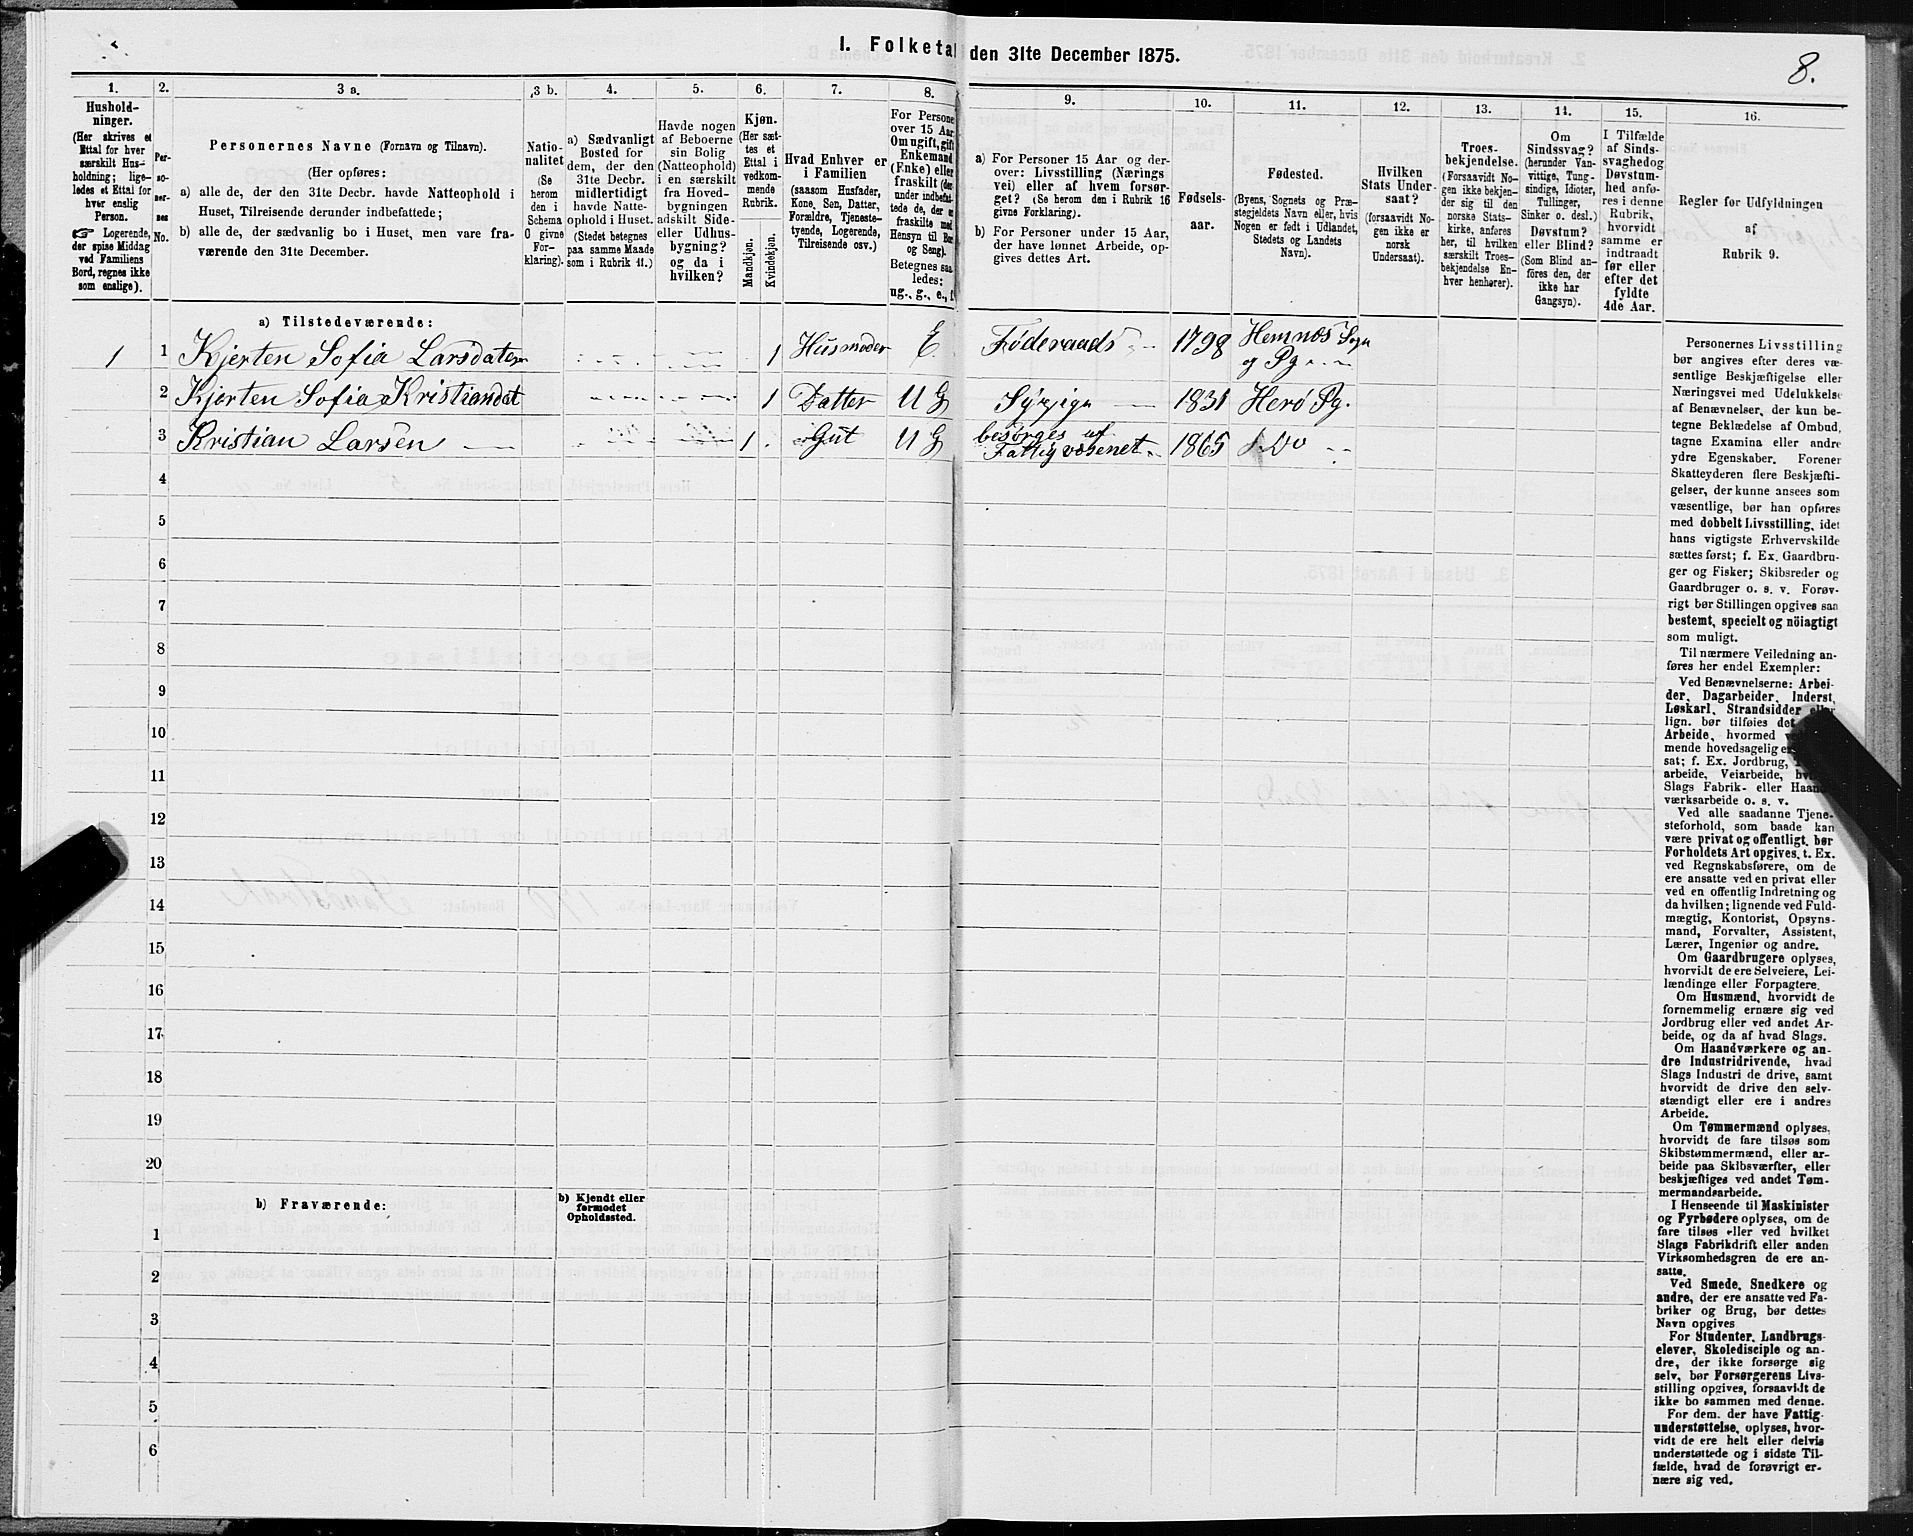 I. Folketal den 31te December 1875.
8.
1. 2. 3 a. 3 b. 4. 5. 6. 7. 8. 9. 10. 11. 12. 13. 14. 15. 16.
Hushold-
ninger.
(Her skrives et
Ettal for hver
særskilt Hus-
holdning; lige-
ledes et Ettal for
hver enslig
Person.
☞ Logerende,
der spise Middag
ved Familiens
Bord, regnes ikke
som enslige).
Per-
so-
ner-
nes
No.
Personernes Navne (Fornavn og Tilnavn).
(Her opføres:
a) alle de, der den 31te Decbr. havde Natteophold i
Huset, Tilreisende derunder indbefattede;
b) alle de, der sædvanlig bo i Huset, men vare fra-
værende den 31te December.
Natio-
nalitet
(Se
herom
den i
Schema
O givne
For-
klaring).
a) Sædvanligt
Bosted for
dem, der den
31te Decbr.
midlertidigt
havde Natte-
ophold i Huset.
(Stedet betegnes
paa samme Maade
som i Rubrik 11.)
Havde nogen
af Beboerne
sin Bolig
(Natteophold)
i en særskilt
fra Hoved-
bygningen
adskilt Side-
eller Udhus-
bygning?
og da i
hvilken?
Kjøn.
(Her sæt-
tes et
Ettal i
vedkom-
mende
Rubrik.
Mandkjøn.
Kvindekjøn.
Hvad Enhver er
i Familien
(saasom Husfader,
Kone, Søn, Datter,
Forældre, Tjeneste-
tyende, Logerende,
Tilreisende osv.)
For Persone
over 15 Aar
Om ugift, gift
Enkemand
(Enke) eller
fraskilt (der
under indbefat-
tede de, der e
fraskilte med
Hensyn til Bor
og Seng).
Betegnes saa
ledes:
ug., g., e., f
a) For Personer 15 Aar og der-
over: Livsstilling (Nærings
vei) eller af hvem forsør-
get? (Se herom den i Rubrik 16
givne Forklaring).
b) For Personer under 15 Aar,
der have lønnet Arbeide, op-
gives dettes Art.
Fødsels-
aar.
Fødested.
(Byens, Sognets og Præ-
stegjeldets Navn eller, hvis
Nogen er født i Udlandet,
Stedets og Landets
Navn).
Hvilken
Stats Under-
saat?
(forsaavidt No-
gen ikke er
norsk
Undersaat).
Troes-
bekjendelse.
(Forsaavidt No-
gen ikke bekjen-
der sig til den
norske Stats-
kirke, anføres
her, til hvilken
særskilt Troes-
bekjendelse En-
hver henhører).
Om
Sindssvag?
(herunder Van-
vittige, Tung-
sindige, Idioter,
Tullinger,
Sinker o. desl.)
Døvstum?
eller Blind?
(Som Blind an-
føres den, der
ikke har
Gangsyn).
I Tilfælde
af Sinds-
svaghedog
Døvstum-
hed anfø-
res i denne
Rubrik,
hvorvidt
samme er
indtraadt
før eller
efter det
fyldte
4de Aar.
Regler før Udfyldningen
af
Rubrik 9.
a) Tilstedeværende:
1 1 Kjerten Sofia Larsdater 1 Husmoder E. Føderaads 1798 Hemnæs Sogn
og Pg
2 Kjerten Sofia Kristiandat 1 Datter UG Syepige 1831 Herø Pg.
3 Kristian Larsen 1 Gut UG besørges af
Fattigvæsenet 1865 Do
4
5
6
7
8
9
10
11
12
13
14
15
16
17
18
19
20
b) Fraværende:
b) Kjendt eller
formodet
Opholdssted.
1
2
3
4
5
6
Personernes Livsstilling
bør angives efter deres væ-
sentlige Beskjæftigelse eller
Næringsvei med Udelukkelse
af Benævnelser, der kun be-
tegne Beklædelse af Ombud,
tagne Examina eller andre
ydre Egenskaber. Forener
Skatteyderen flere Beskjæfti-
gelser, der kunne ansees som
væsentlige, bør han opføres
med dobbelt Livsstilling, idet
hans vigtigste Erhvervskilde
sættes først; f. Ex. Gaardbru-
ger og Fisker; Skibsreder og
Gaardbruger o. s. v. Forøv-
rigt bør Stillingen opgives saa
bestemt, specielt og nöiagtigt
som muligt.
Til nærmere Veiledning an-
føres her endel Exempler:
Ved Benævnelserne: Arbei-
der, Dagarbeider, Inderst,
Løskarl, Strandsidder eller
lign. bør tilføies det
Arbeide, hvormed
mende hovedsagelig er
sat; f. Ex. Jordbrug,
arbeide, Veiarbeide,
Slags Fabrik- eller Haand-
værksarbeide o. s. v.
Ved alle saadanne Tjene-
steforhold, som baade kan
være privat og offentligt, bør
Forholdets Art opgives, t. Ex.
ved Regnskabsførere, om de
ere ansatte ved en privat eller
ved en offentlig Indretning og
da hvilken; lignende ved Fuld-
mægtig, Kontorist, Opsyns-
mand, Forvalter, Assistent,
Lærer, Ingeniør og andre.
Om Gaardbrugere oplyses,
hvorvidt de ere Selveiere, Lei-
lændinge eller Forpagtere.
Om Husmænd, hvorvidt de
fornemmelig ernære sig ved
Jordbrug eller ved andet Ar-
beide, og da af hvad Slags.
Om Haandværkere og an-
dre Industridrivende, hvad
Slags Industri de drive, samt
hvorvidt de drive den selv-
stændigt eller ere i andres
Arbeide.
Om Tømmermænd oplyses,
hvorvidt de fare tilsøs som
Skibstømmermænd, eller ar-
beide paa Skibsværfter, eller
beskjæftiges ved andet Tøm-
mermandsarbeide.
I Henseende til Maskinister
og Fyrbødere oplyses, om de
fare tilsøs eller ved hvilket
Slags Fabrikdrift eller anden
Virksomhedsgren de ere an-
satte.
Ved Smede, Snedkere og
andre, der ere ansatte ved Fa-
briker og Brug, bør dettes
Navn opgives
For Studenter, Landbrugs-
elever, Skoledisciple og an-
dre, der ikke forsørge sig
selv, bør Forsørgerens Livs-
stilling opgives, forsaavidt de
ikke bo sammen med denne.
For dem, der have Fattig-
understøttelse, oplyses, hvor-
vidt de ere helt eller delvis
understøttede og i sidste Til-
fælde, hvad de forøvrigt er-
nære sig ved.